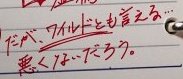 だが、ワイルドとも言える…
悪くはないだろう。